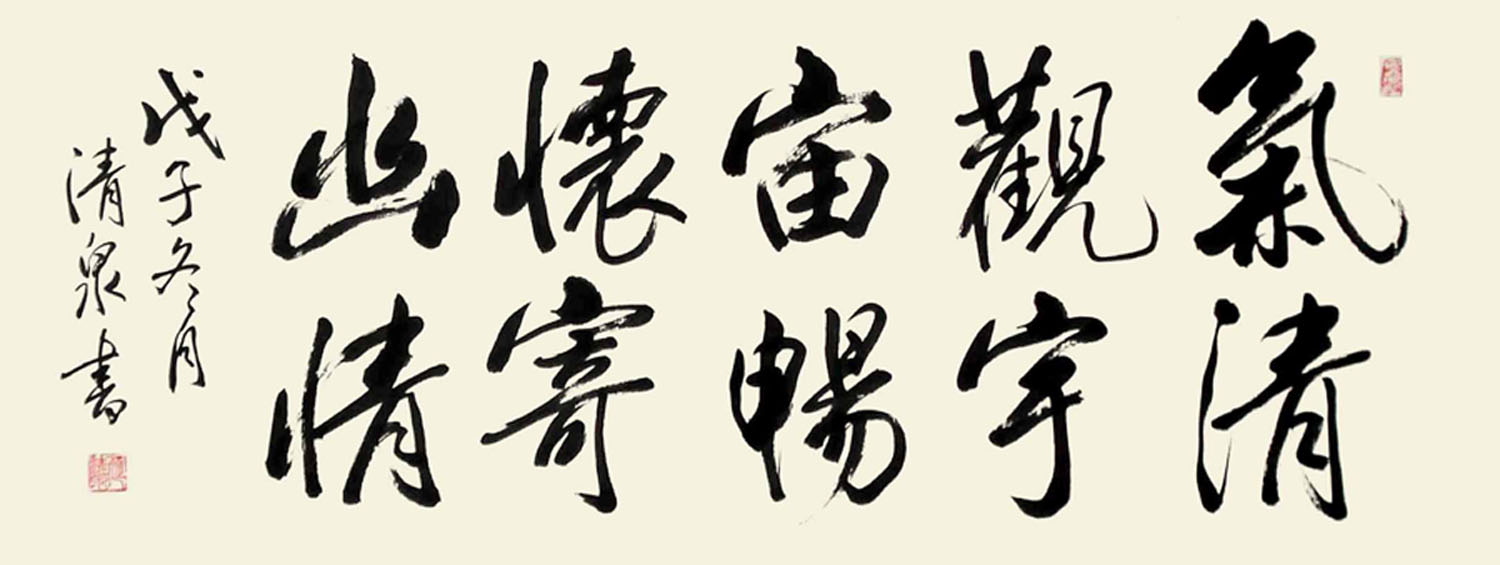 氣清
觀宇
宙暢
懷寄
幽情
戊子冬月
清泉書